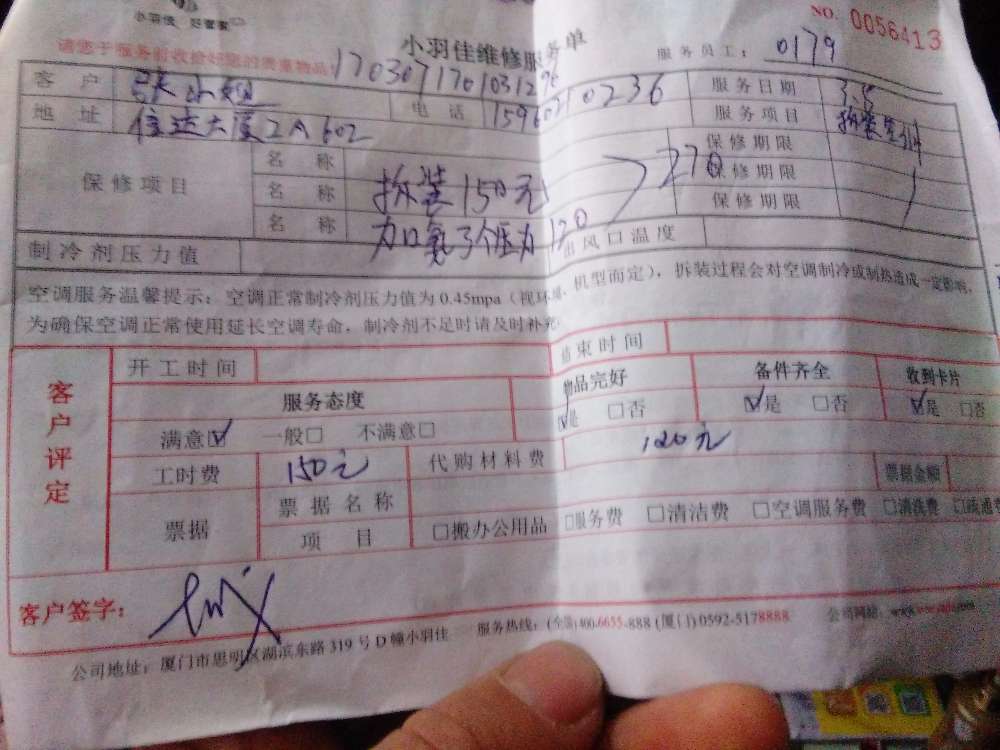 小羽佳
NO. 0056413
小羽佳维修服务单
请您于服务前收拾好您的贵重物品
服务员工: 0179
1703071701031296
客户 张小姐 电话 15960210236 服务日期 3.8
地址 信达大厦2A602 服务项目 拆装空调
保修项目 名称 保修期限
名称 拆装150元 270 保修期限
名称 加氟了个压力 120 保修期限
制冷剂压力值 出风口温度
空调服务温馨提示:空调正常制冷剂压力值为0.45mpa(视环境、机型而定),拆装过程会对空调制冷或制热造成一定影响,
为确保空调正常使用延长空调寿命,制冷剂不足时请及时补充
客户评定
开工时间 结束时间
服务态度 物品完好 备件齐全 收到卡片
满意☑ 一般□ 不满意□ ☑是 □否 ☑是 □否 ☑是 □否
工时费 150元 代购材料费 120元
票据 票据名称 票据金额
项目 □搬办公用品 □服务费 □清洁费 □空调服务费 □清洗费
客户签字:
公司地址:厦门市思明区湖滨东路319号D幢小羽佳 服务热线:(全国)400-6655-888 (厦门)0592-5178888 公司网站: